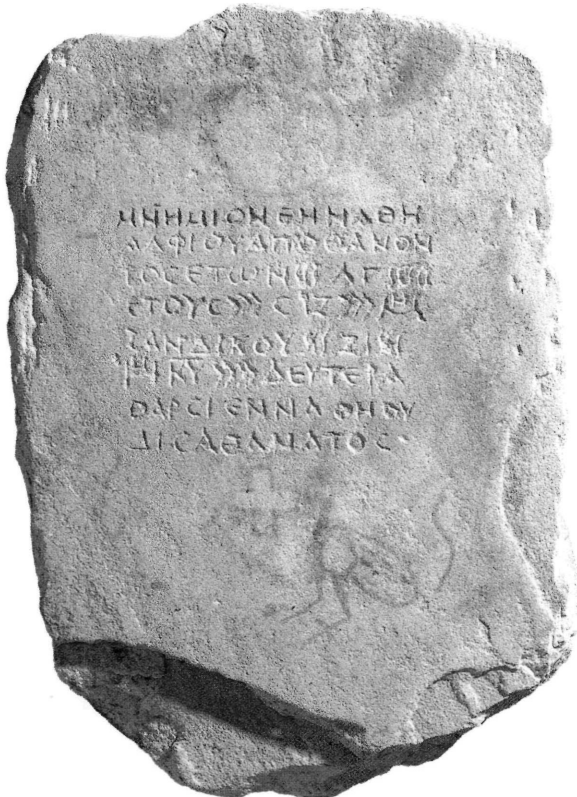 ΜΝΗΜΙΟΝ ΕΝΝΑΘΗ
ΑΛΦΙΟΥ ΑΠΟΘΑΝΟΝ
ΤΟC ΕΤΩΝ ΛΓ
ΕΤΟΥC CΙΖ
ΞΑΝΔΙΚΟΥ ΙΞ
ΚΥ ΔΕΥΤΕΡΑ
ΘΑΡCΙ ΕΝΝΑΘΗ ΟΥ
ΔΙC ΑΘΑΝΑΤΟC